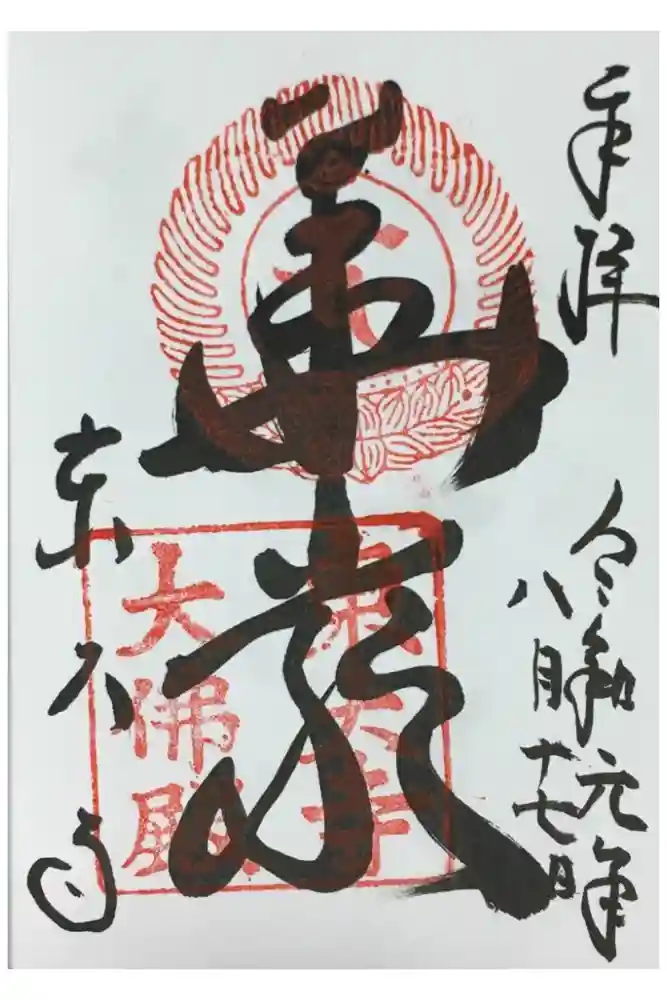 奉拝
令和元年
八月十七日
華厳
東大寺
大佛殿
東大寺